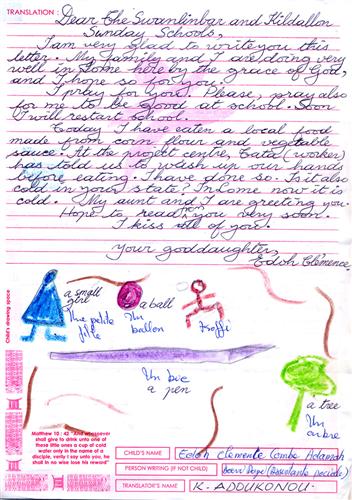 TRANSLATION:
Dear The Swanlinbar and Kildallon
Sunday Schools,
I am very glad to write you this
letter. My family and I are doing very
well in Lome here by the grace of God,
and I hope so for you.
I pray for you. Please, pray also
for me to be good at school. Soon
I will restart school.
Today I have eaten a local food
made from corn flour and vegetable
sauce. At the projet centre, Tata (worker)
has told us to wash up our hands
before eating. I have done so. Is it also
cold in your state? In Lome now it is
cold. My aunt and I are greeting you
Hope to read you very soon.
I kiss all of you.
Your goddaughter,
Edoh Clémence
Child's drawing space
a small
girl
Une petite
fille
a ball
Un
ballon
Koffi
Un bic
a pen
a tree
Un
arbre
Matthew 10 : 42 "And whosoever
shall give to drink unto one of
these little ones a cup of cold
water only in the name of a
disciple, verily I say unto you, he
shall in no wise lose his reward"
CHILD'S NAME Edoh Clemente Combe Adamah
PERSON WRITING (IF NOT CHILD)
TRANSLATOR'S NAME K. ADDUKONOU